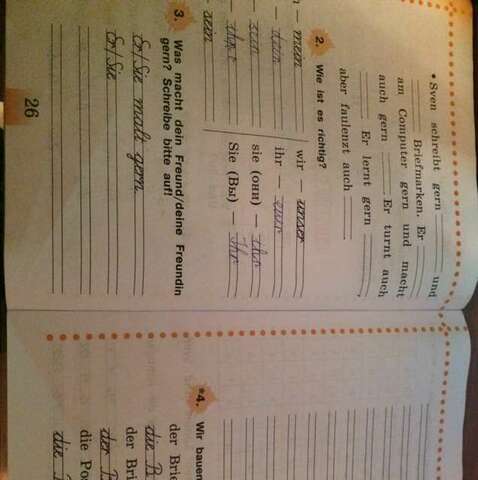 • Sven schreibt gern und
Briefmarken. Er
am Computer gern und macht
auch gern . Er turnt auch
. Er lernt gern ,
aber faulenzt auch .
2. Wie ist es richtig?
– mein wir – unser
– dein ihr – euer
– sein sie (они) – ihr
– Sie (Вы) – Ihr
– sein
3. Was macht dein Freund/deine Freundin
gern? Schreibe bitte auf!
Er/Sie malt gern
Er/Sie
26
*4. Wir bauen
der Brie
die B
der Bri
der B
die Po
die